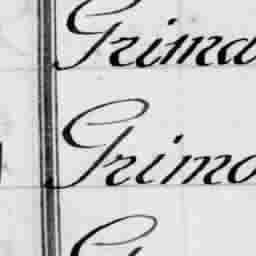 Grima
Grimo
G